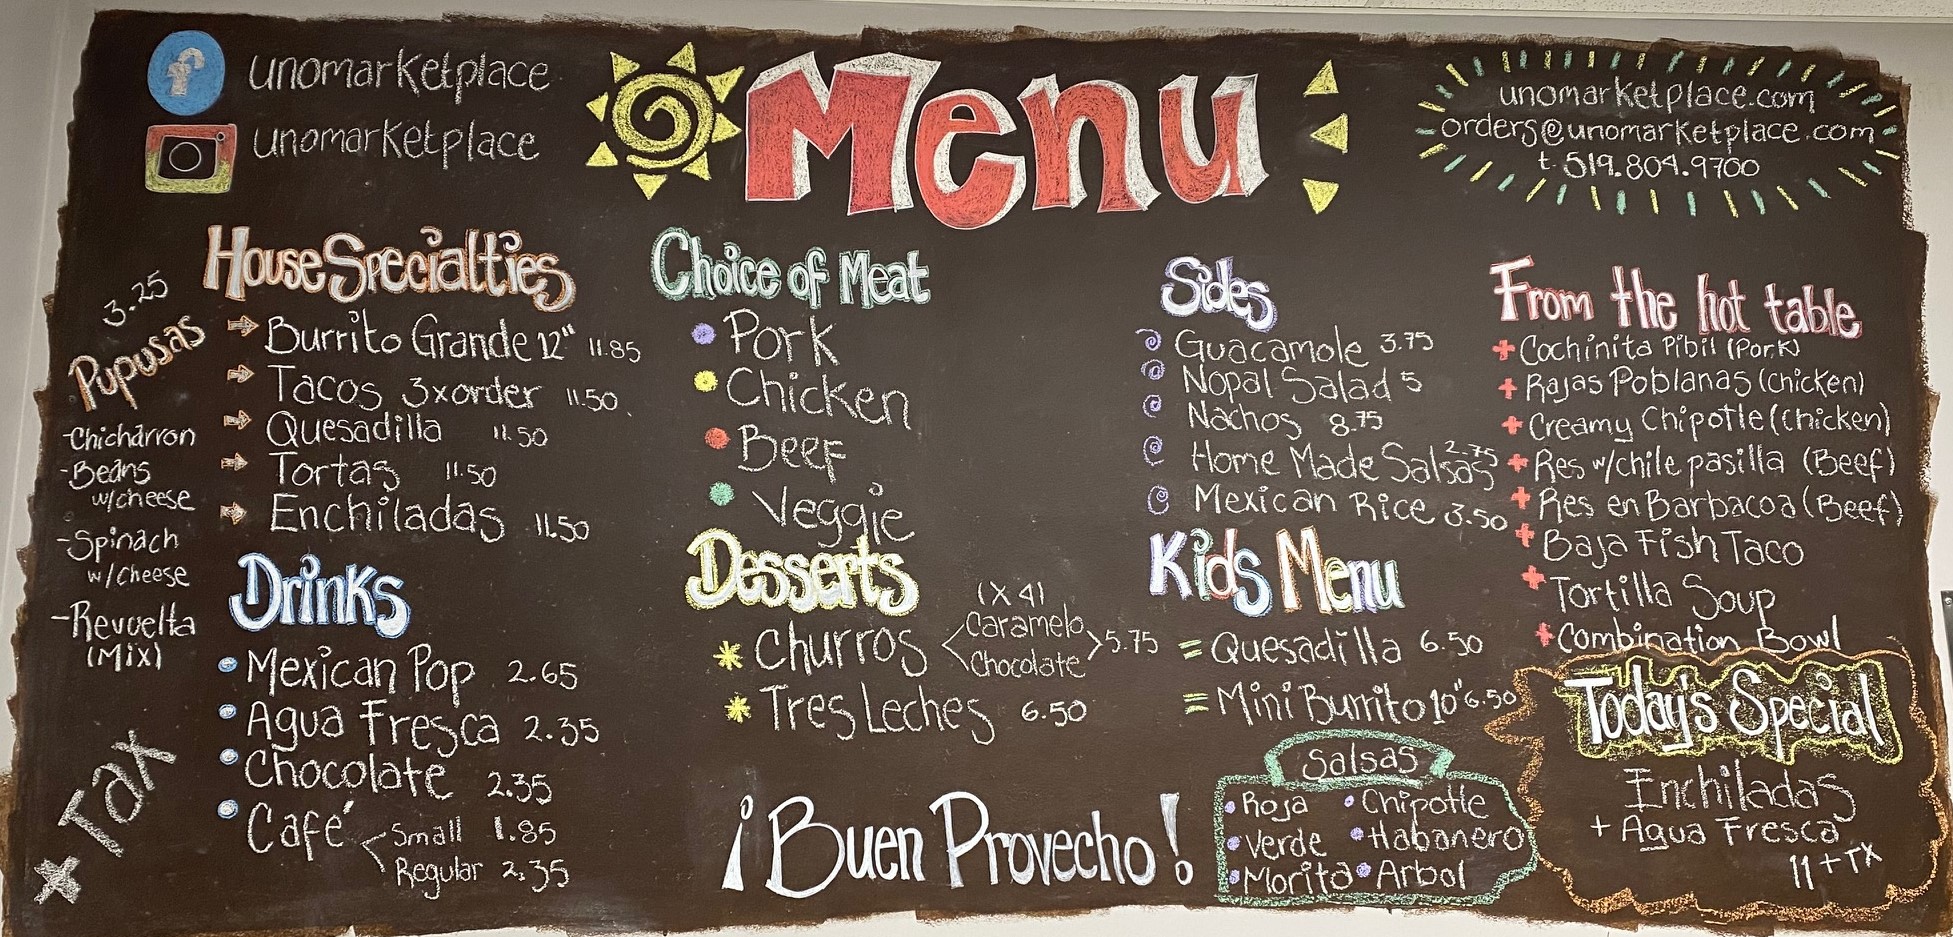 unomarketplace
unomarketplace
Menu
unomarketplace.com
orders@unomarketplace.com
t. 519.804.9700
3.25
Pupusas
-Chicharron
-Beans
w/cheese
-Spinach
w/cheese
-Revuelta
(Mix)
+ Tax
House Specialties
Burrito Grande 12" 11.85
Tacos 3xorder 11.50
Quesadilla 11.50
Tortas 11.50
Enchiladas 11.50
Drinks
Mexican Pop 2.65
Agua Fresca 2.35
Chocolate 2.35
Café
Small 1.85
Regular 2.35
Choice of Meat
Pork
Chicken
Beef
Veggie
Desserts
(X 4)
Churros Caramelo Chocolate 5.75
Tres Leches 6.50
¡Buen Provecho!
Sides
Guacamole 3.75
Nopal Salad 5
Nachos 8.75
Home Made Salsas 2.75
Mexican Rice 3.50
Kids Menu
= Quesadilla 6.50
= Mini Burrito 10" 6.50
Salsas
Roja
Verde
Morita
Chipotle
Habanero
Arbol
From the hot table
+ Cochinita Pibil (Pork)
+ Rajas Poblanas (Chicken)
+ Creamy Chipotle (Chicken)
+ Res w/chile pasilla (Beef)
+ Res en Barbacoa (Beef)
+ Baja Fish Taco
+ Tortilla Soup
+ Combination Bowl
Today's Special
Enchiladas
+ Agua Fresca
11 + TX